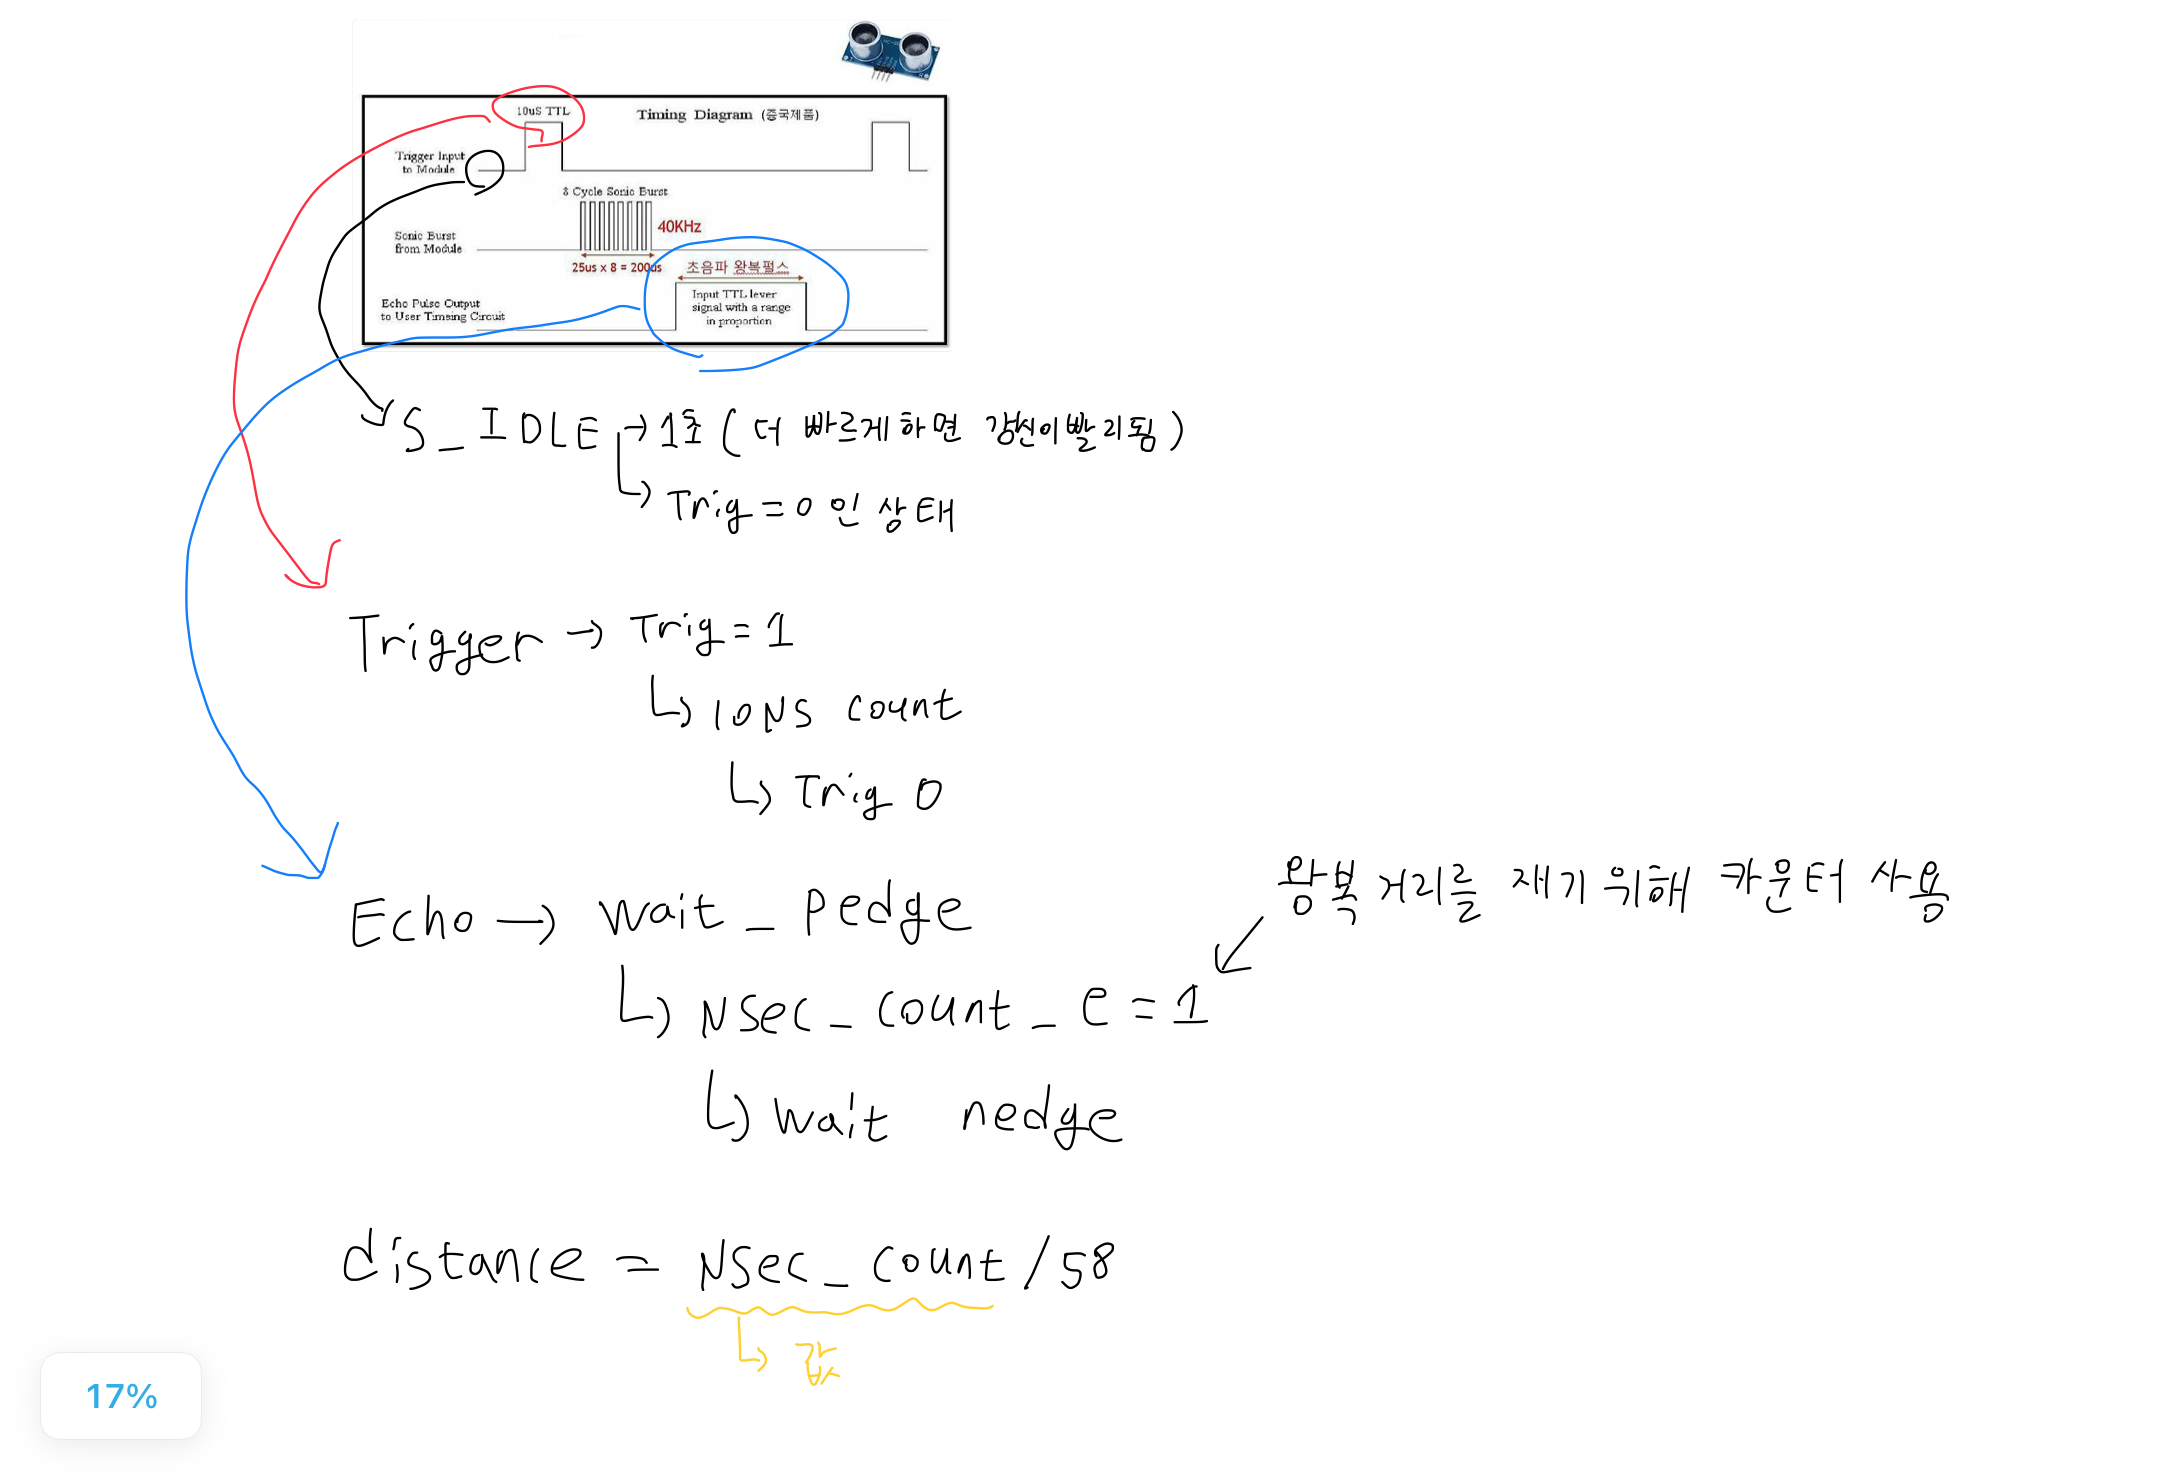 10uS TTL
Timing Diagram (중국제품)
Trigger Input
to Module
8 Cycle Sonic Burst
40KHz
Sonic Burst
from Module
25us x 8 = 200us
초음파 왕복펄스
Echo Pulse Output
to User Timeing Circuit
Input TTL lever
signal with a range
in proportion
S_IDLE → 1초 (더 빠르게하면 갱신이빨리됨)
↳ Trig = 0 인 상태
Trigger → Trig = 1
↳ 10NS count
↳ Trig 0
왕복 거리를 재기 위해 카운터 사용
Echo → wait_pedge
↳ NSec_count_e = 1
↳ wait nedge
distance = NSec_count / 58
↳ 값
17%